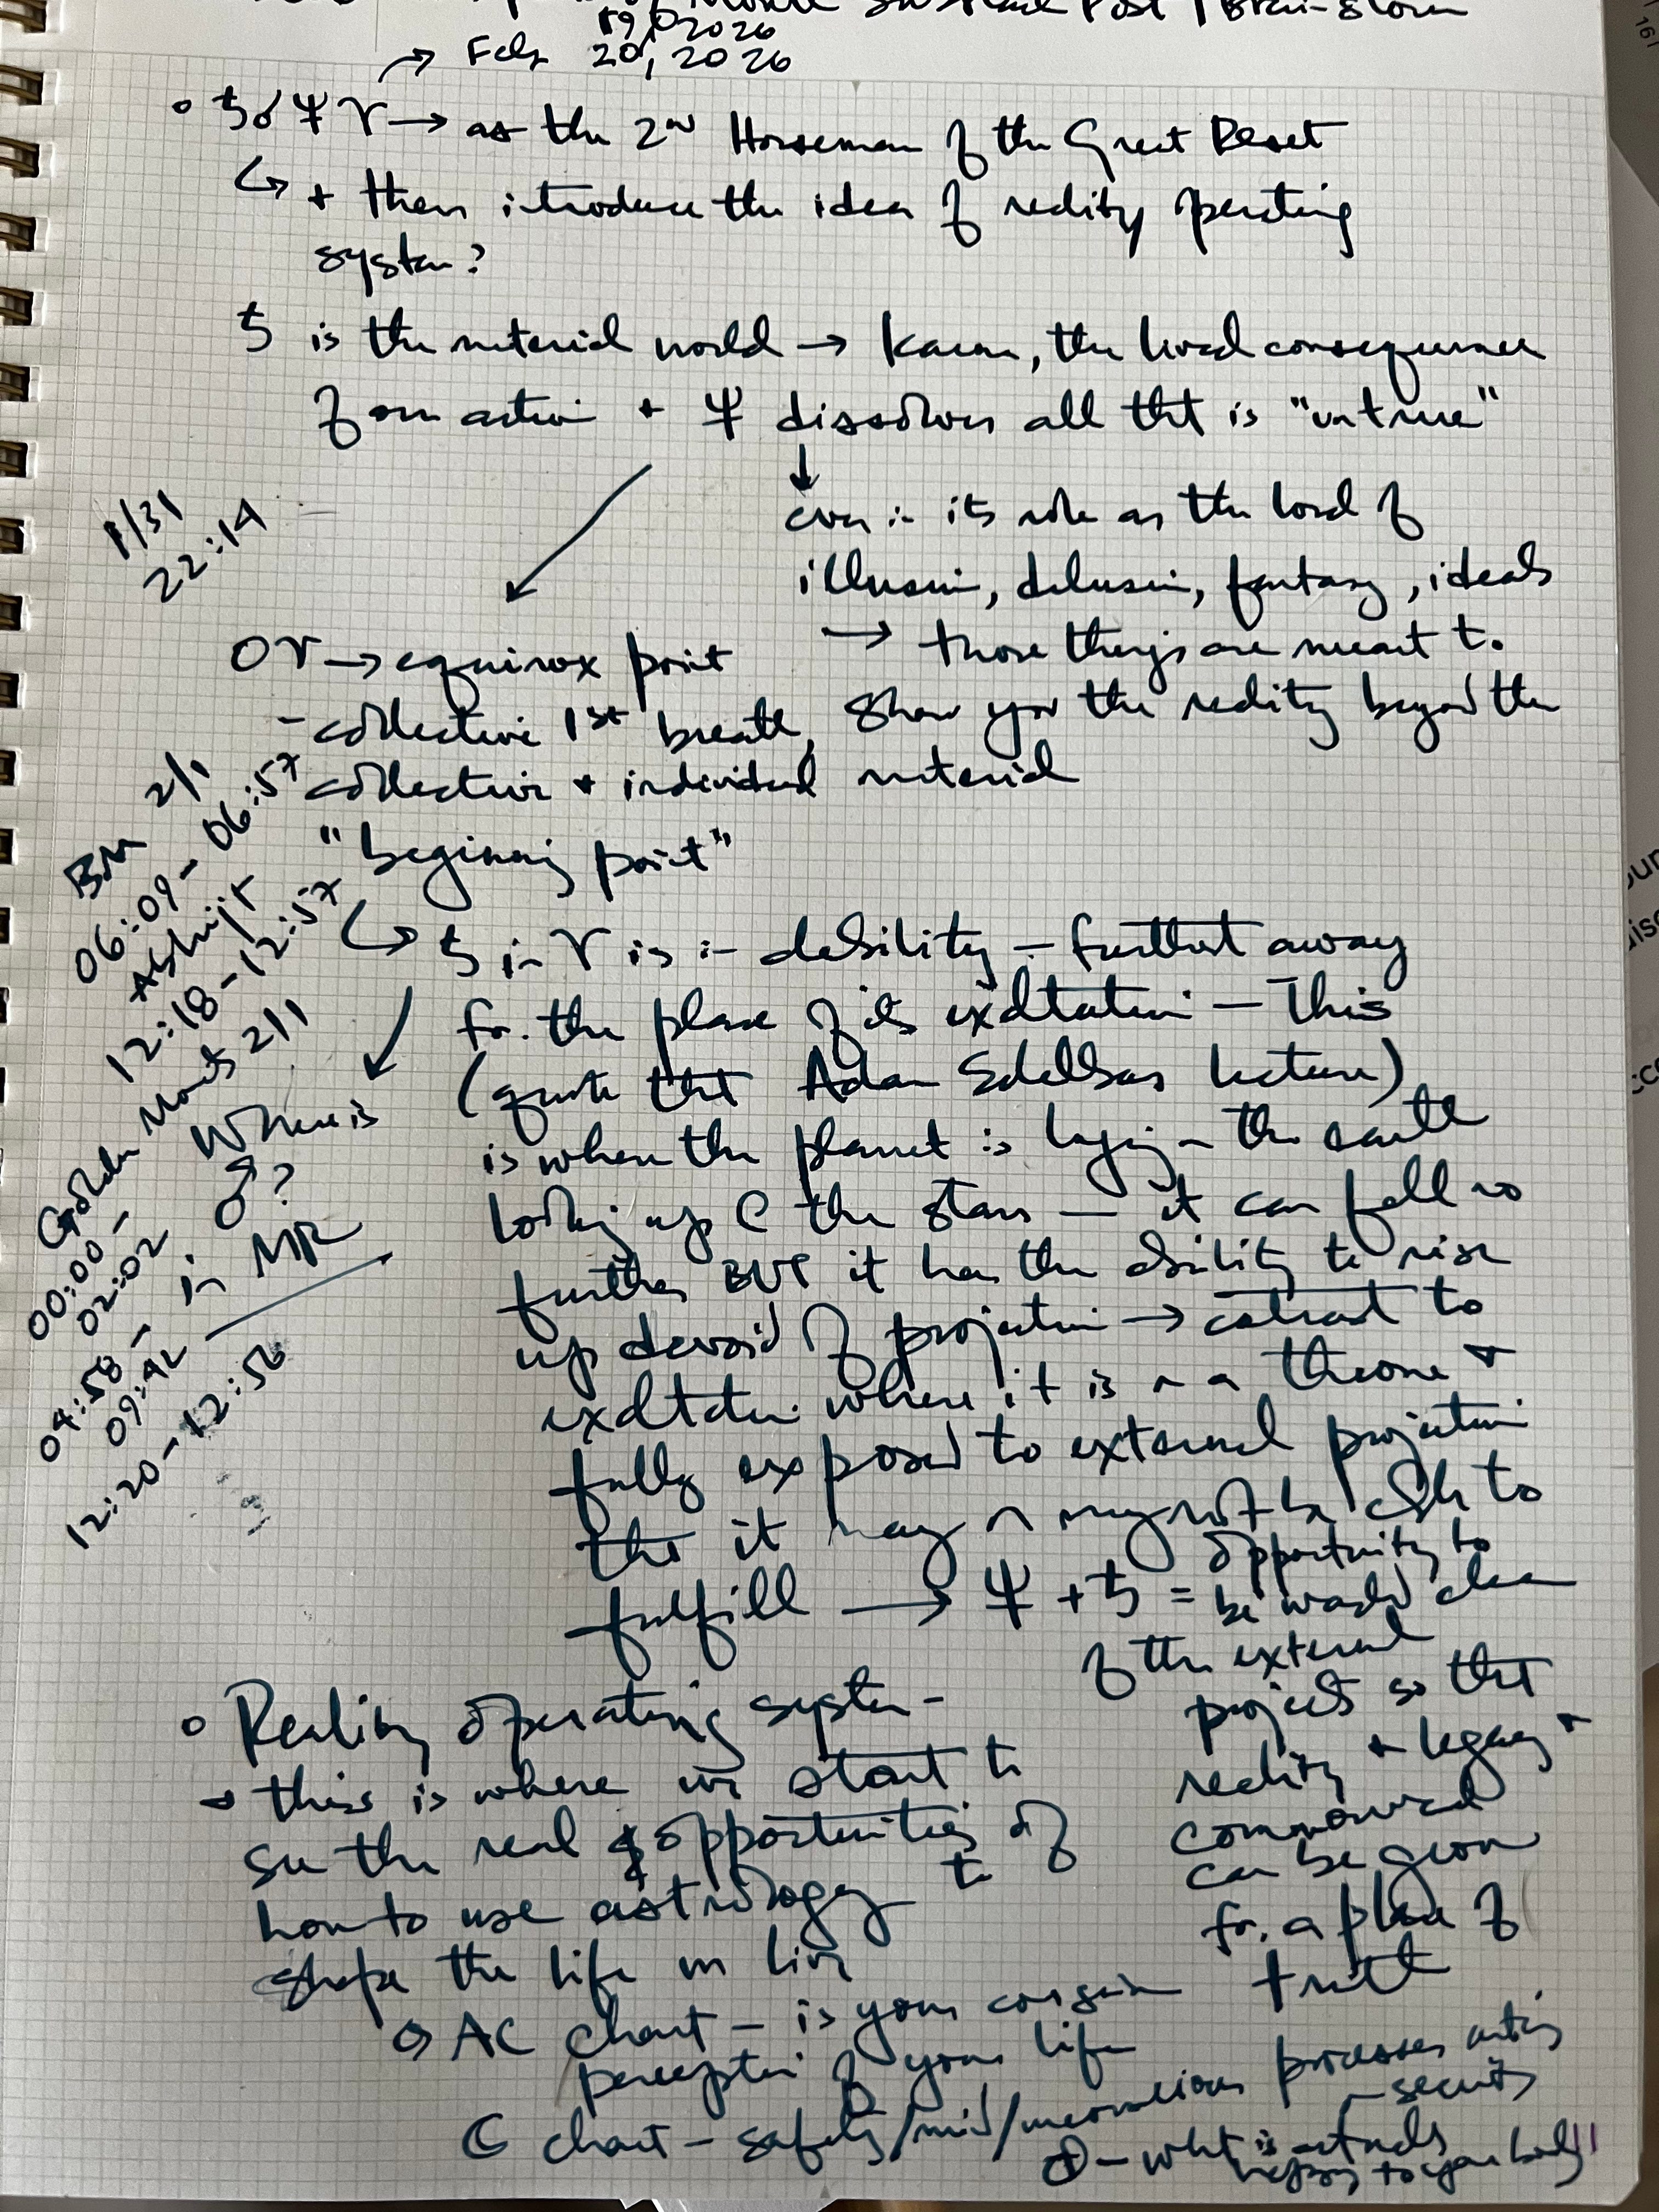 Substack Post / Brain-storm
19, 2026
→ Feb 20, 2026
• ♄☌♆♈ → as the 2nd Horseman of the Great Reset
↳ + then introduce the idea of reality operating
system?
♄ is the material world → karma, the lived consequences
of our action + ♆ dissolves all tht is "untrue"
↓
even in its role as the lord of
illusion, delusion, fantasy, ideals
→ those things are meant to
show you the reality beyond the
material
0♈ → equinox point
- collective 1st breath,
collective + individual
"beginning point"
↳ ♄ in ♈ is in debility - furthest away
fr. the place of its exaltation - This
(quote tht Adam lecture)
is when the planet is laying on the earth
looking up @ the stars - it can fall no
further BUT it has the ability to rise
up devoid of projection → contrast to
exaltation where it is on a throne +
fully exposed to external projection
tht it may or may not be able to
fulfill → ♆ + ♄ = opportunity to
be washed clean
of the external
projects so tht
reality + legacy +
can be grown
fr. a place of
truth
Where is
♂?
in MR
1/31
22:14
BM 2/1
06:09 - 06:57
Abhijit
12:18 - 12:57
Golden Monts 2/1
00:00 -
02:02
04:58 -
09:42
12:20 - 12:56
• Reality operating system -
→ this is where we start to
see the real & opportunities of
how to use astrology to
shape the life we live
→ AC chart - is your conscious
perception of your life
☾ chart - safety/mind/unconscious processes
- security
⊕ - what is actually
happening to your body!!